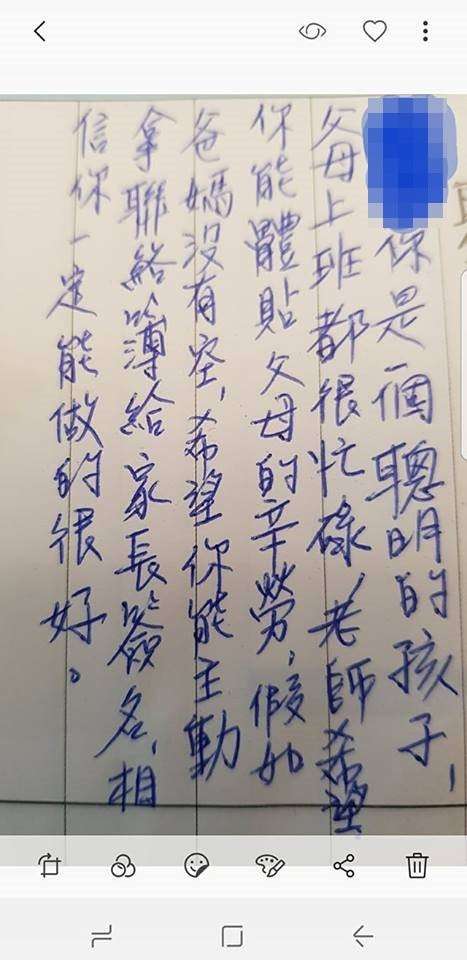 你是一個聰明的孩子，
父母上班都很忙碌，老師希望
你能體貼父母的辛勞，假如
爸媽沒有空，希望你能主動
拿聯絡簿給家長簽名，相
信你一定能做的很好。